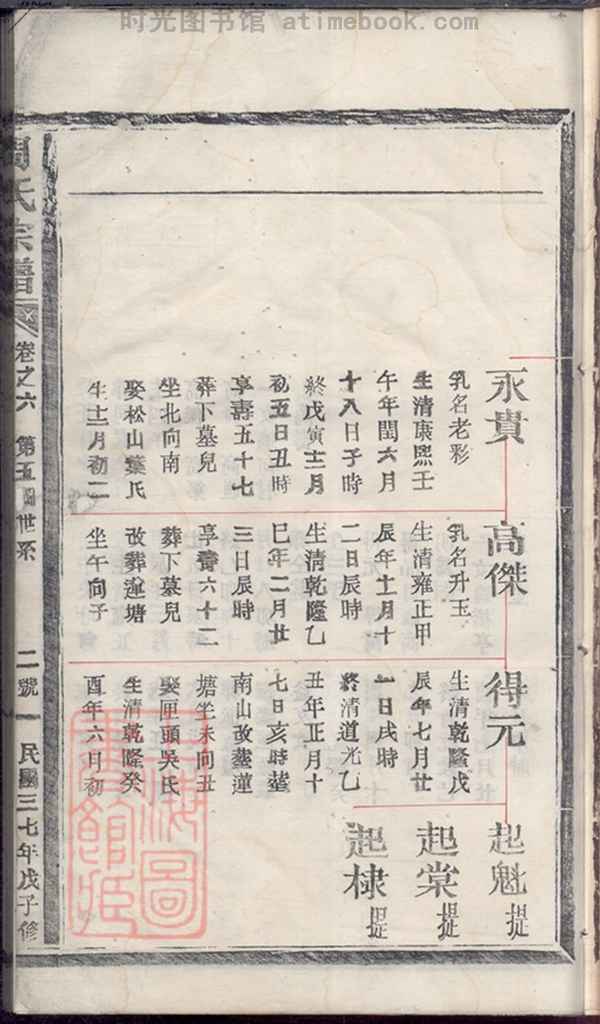 时光图书馆 atimebook.com
永貴
乳名老彩
生清康熙壬
午年閏六月
十八日子時
終戊寅十二月
初五日丑時
享壽五十七
葬下墓兒
坐北向南
娶松山葉氏
生十二月初二
高傑
乳名升玉
生清雍正甲
辰年十二月十
二日辰時
生清乾隆乙
巳年二月廿
三日辰時
享壽六十二
葬下墓兒
改葬蓮塘
坐午向子
得元
生清乾隆戊
辰年七月廿
一日戌時
終清道光乙
丑年正月十
七日亥時塟
南山改塟蓮
塘坐未向丑
娶匣頭吳氏
生清乾隆癸
酉年六月初
起魁 提
起棠 提
起棣 提
氏宗譜
卷之六 第五 世系
二號
民國三七年戊子修
上海圖書館藏